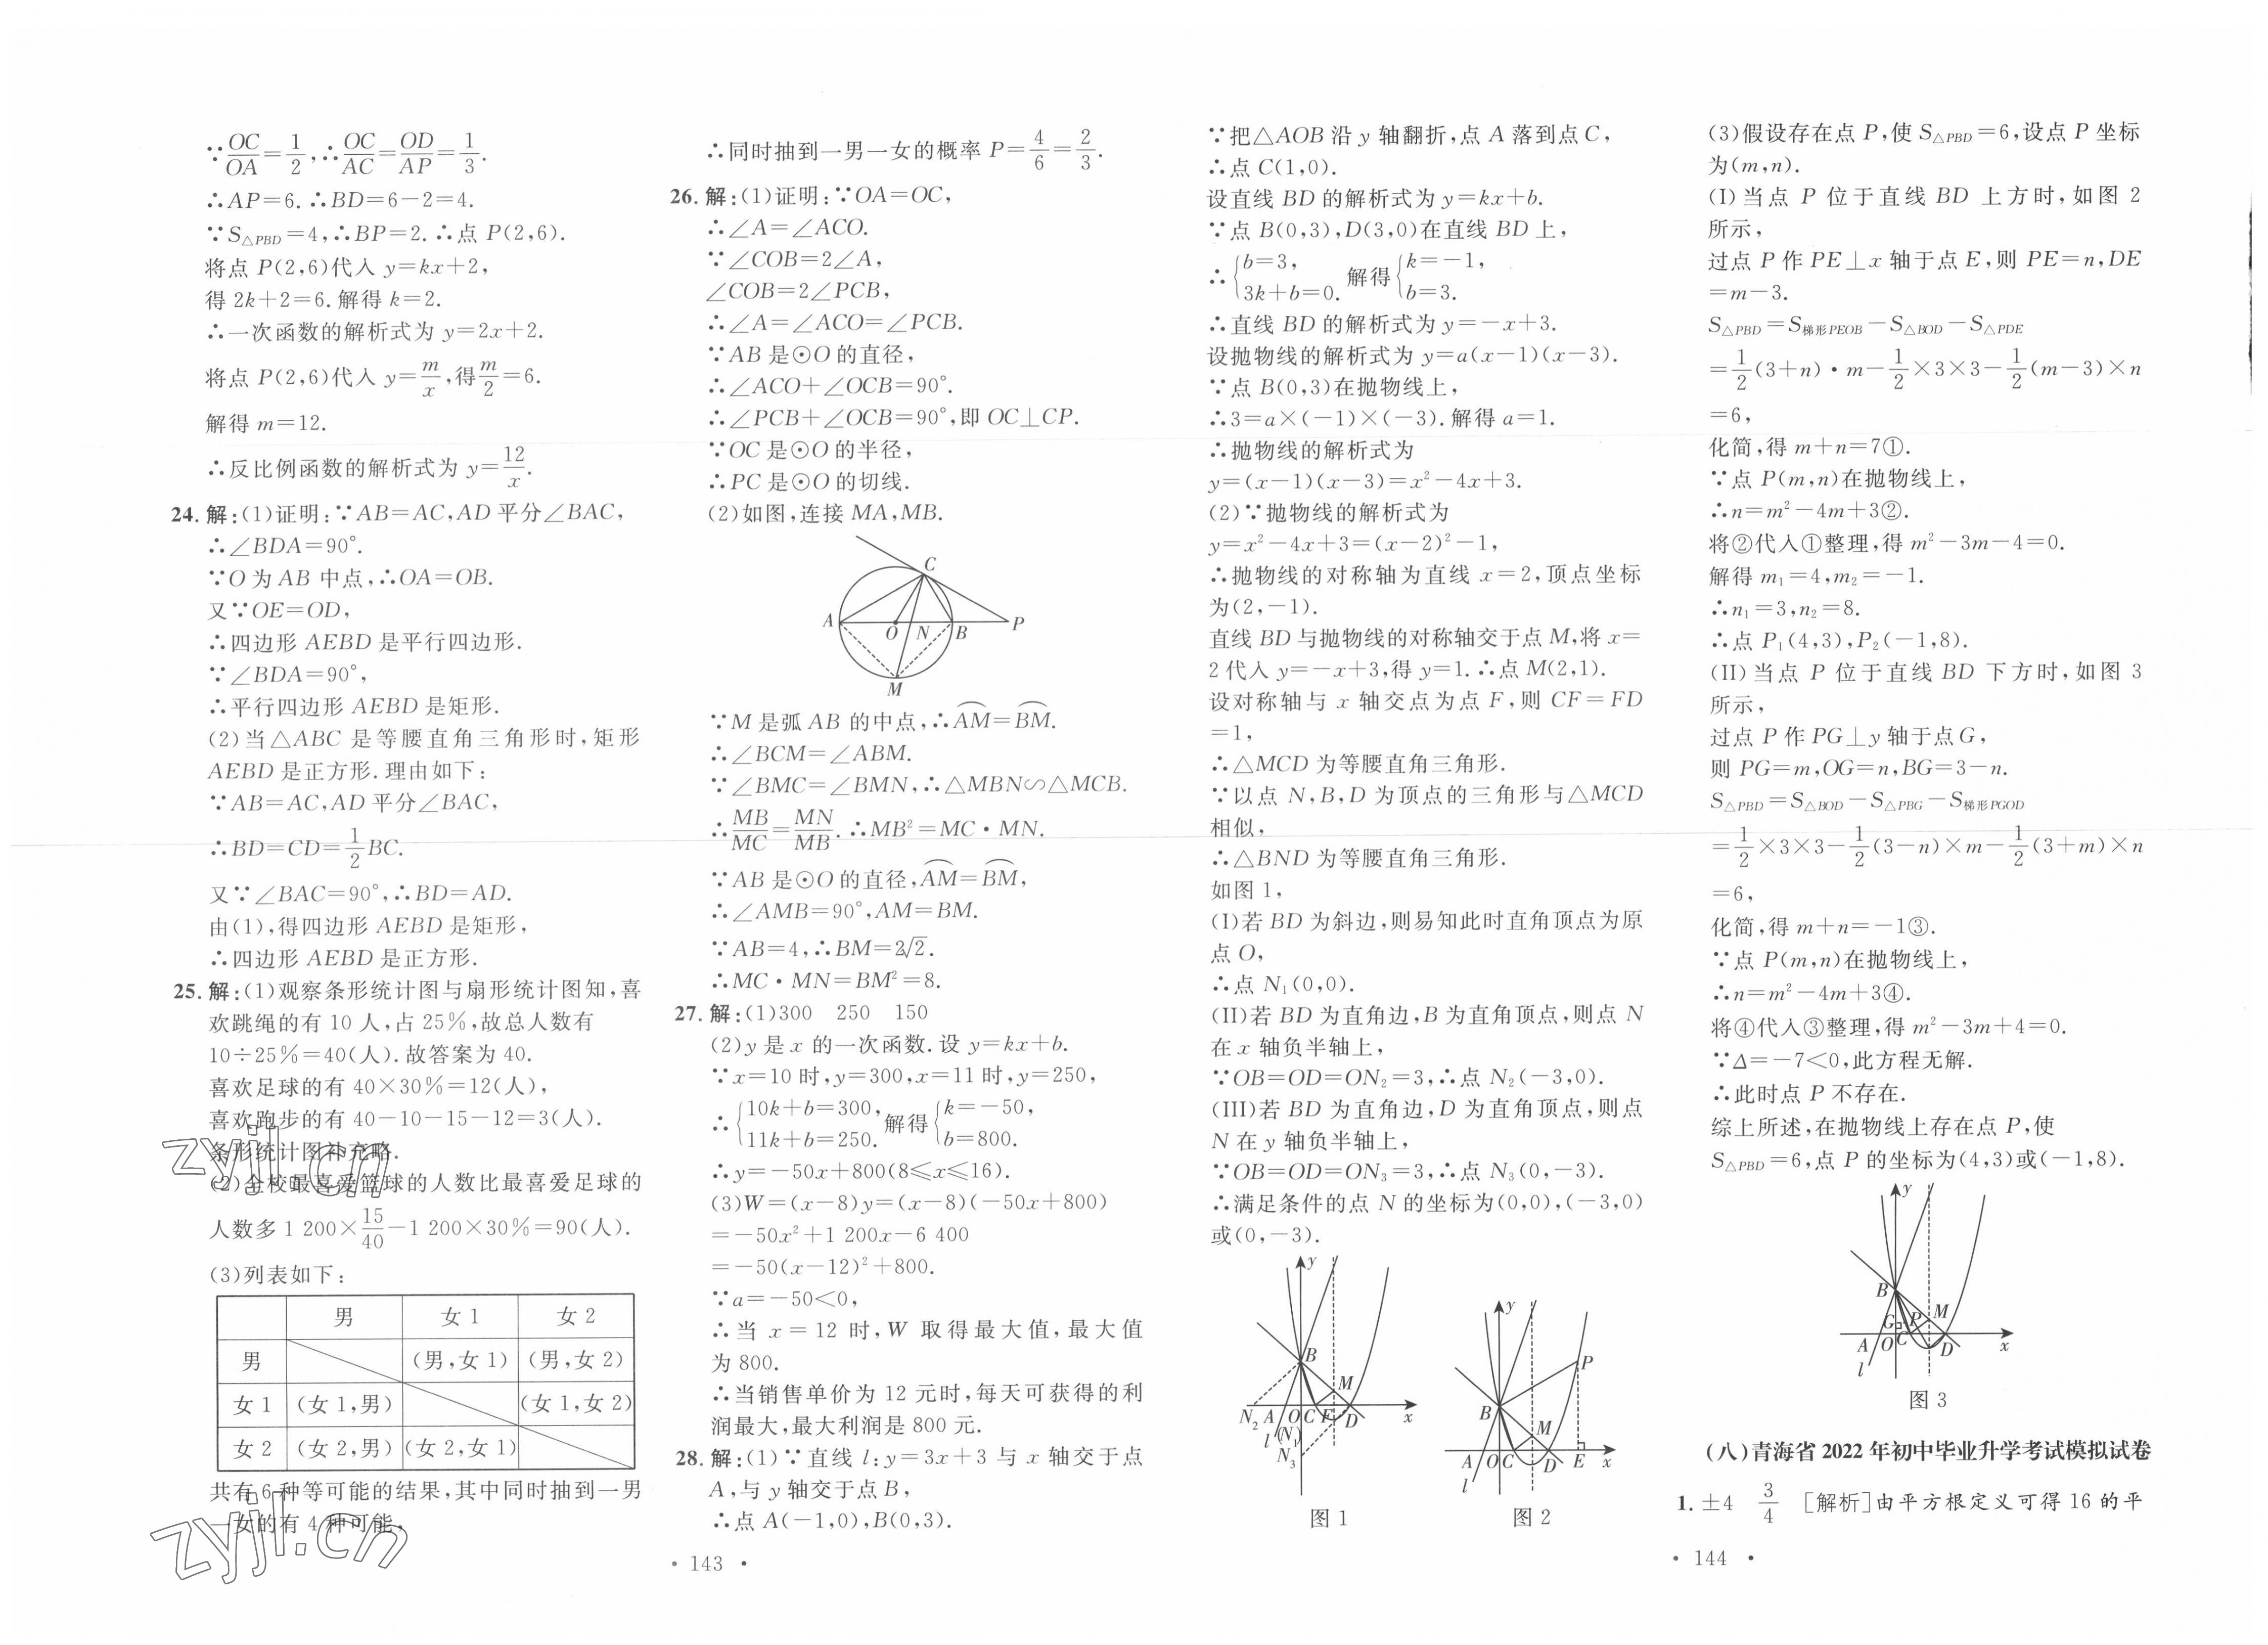 ∵OC/OA=1/2,∴OC/AC=OD/AP=1/3.
∴AP=6.∴BD=6-2=4.
∵S△PBD=4,∴BP=2.∴点 P(2,6).
将点 P(2,6)代入 y=kx+2,
得 2k+2=6.解得 k=2.
∴一次函数的解析式为 y=2x+2.
将点 P(2,6)代入 y=m/x,得m/2=6.
解得 m=12.
∴反比例函数的解析式为 y=12/x.
24.解:(1)证明:∵AB=AC,AD 平分∠BAC,
∴∠BDA=90°.
∵O 为 AB 中点,∴OA=OB.
又∵OE=OD,
∴四边形 AEBD 是平行四边形.
∵∠BDA=90°,
∴平行四边形 AEBD 是矩形.
(2)当△ABC 是等腰直角三角形时,矩形
AEBD 是正方形.理由如下:
∵AB=AC,AD 平分∠BAC,
∴BD=CD=1/2 BC.
又∵∠BAC=90°,∴BD=AD.
由(1),得四边形 AEBD 是矩形,
∴四边形 AEBD 是正方形.
25.解:(1)观察条形统计图与扇形统计图知,喜
欢跳绳的有 10 人,占 25%,故总人数有
10÷25%=40(人).故答案为 40.
喜欢足球的有 40×30%=12(人),
喜欢跑步的有 40-10-15-12=3(人).
条形统计图补充略.
(2)全校最喜爱篮球的人数比最喜爱足球的
人数多 1 200×15/40-1 200×30%=90(人).
(3)列表如下:
男 女 1 女 2
男 (男,女 1) (男,女 2)
女 1 (女 1,男) (女 1,女 2)
女 2 (女 2,男) (女 2,女 1)
共有 6 种等可能的结果,其中同时抽到一男
一女的有 4 种可能,
zyjl.cn
zyjl.cn
∴同时抽到一男一女的概率 P=4/6=2/3.
26.解:(1)证明:∵OA=OC,
∴∠A=∠ACO.
∵∠COB=2∠A,
∠COB=2∠PCB,
∴∠A=∠ACO=∠PCB.
∵AB 是⊙O 的直径,
∴∠ACO+∠OCB=90°.
∴∠PCB+∠OCB=90°,即 OC⊥CP.
∵OC 是⊙O 的半径,
∴PC 是⊙O 的切线.
(2)如图,连接 MA,MB.
C
A O N B P
M
∵M 是弧 AB 的中点,∴⌒AM=⌒BM.
∴∠BCM=∠ABM.
∵∠BMC=∠BMN,∴△MBN∽△MCB.
∴MB/MC=MN/MB.∴MB²=MC·MN.
∵AB 是⊙O 的直径,⌒AM=⌒BM,
∴∠AMB=90°,AM=BM.
∵AB=4,∴BM=2√2.
∴MC·MN=BM²=8.
27.解:(1)300 250 150
(2)y 是 x 的一次函数.设 y=kx+b.
∵x=10 时,y=300,x=11 时,y=250,
∴{10k+b=300, 11k+b=250. 解得{k=-50, b=800.
∴y=-50x+800(8≤x≤16).
(3)W=(x-8)y=(x-8)(-50x+800)
=-50x²+1 200x-6 400
=-50(x-12)²+800.
∵a=-50<0,
∴当 x=12 时,W 取得最大值,最大值
为 800.
∴当销售单价为 12 元时,每天可获得的利
润最大,最大利润是 800 元.
28.解:(1)∵直线 l:y=3x+3 与 x 轴交于点
A,与 y 轴交于点 B,
∴点 A(-1,0),B(0,3).
· 143 ·
∵把△AOB 沿 y 轴翻折,点 A 落到点 C,
∴点 C(1,0).
设直线 BD 的解析式为 y=kx+b.
∵点 B(0,3),D(3,0)在直线 BD 上,
∴{b=3, 3k+b=0. 解得{k=-1, b=3.
∴直线 BD 的解析式为 y=-x+3.
设抛物线的解析式为 y=a(x-1)(x-3).
∵点 B(0,3)在抛物线上,
∴3=a×(-1)×(-3).解得 a=1.
∴抛物线的解析式为
y=(x-1)(x-3)=x²-4x+3.
(2)∵抛物线的解析式为
y=x²-4x+3=(x-2)²-1,
∴抛物线的对称轴为直线 x=2,顶点坐标
为(2,-1).
直线 BD 与抛物线的对称轴交于点 M,将 x=
2 代入 y=-x+3,得 y=1.∴点 M(2,1).
设对称轴与 x 轴交点为点 F,则 CF=FD
=1,
∴△MCD 为等腰直角三角形.
∵以点 N,B,D 为顶点的三角形与△MCD
相似,
∴△BND 为等腰直角三角形.
如图 1,
(I)若 BD 为斜边,则易知此时直角顶点为原
点 O,
∴点 N₁(0,0).
(II)若 BD 为直角边,B 为直角顶点,则点 N
在 x 轴负半轴上,
∵OB=OD=ON₂=3,∴点 N₂(-3,0).
(III)若 BD 为直角边,D 为直角顶点,则点
N 在 y 轴负半轴上,
∵OB=OD=ON₃=3,∴点 N₃(0,-3).
∴满足条件的点 N 的坐标为(0,0),(-3,0)
或(0,-3).
y
B
M
N₂ A O C F D x
l (N₁)
N₃
图 1
y
P
B
M
A O C D E x
l
图 2
(3)假设存在点 P,使 S△PBD=6,设点 P 坐标
为(m,n).
(I)当点 P 位于直线 BD 上方时,如图 2
所示,
过点 P 作 PE⊥x 轴于点 E,则 PE=n,DE
=m-3.
S△PBD=S梯形PEOB-S△BOD-S△PDE
=1/2(3+n)·m-1/2×3×3-1/2(m-3)×n
=6,
化简,得 m+n=7①.
∵点 P(m,n)在抛物线上,
∴n=m²-4m+3②.
将②代入①整理,得 m²-3m-4=0.
解得 m₁=4,m₂=-1.
∴n₁=3,n₂=8.
∴点 P₁(4,3),P₂(-1,8).
(II)当点 P 位于直线 BD 下方时,如图 3
所示,
过点 P 作 PG⊥y 轴于点 G,
则 PG=m,OG=n,BG=3-n.
S△PBD=S△BOD-S△PBG-S梯形PGOD
=1/2×3×3-1/2(3-n)×m-1/2(3+m)×n
=6,
化简,得 m+n=-1③.
∵点 P(m,n)在抛物线上,
∴n=m²-4m+3④.
将④代入③整理,得 m²-3m+4=0.
∵Δ=-7<0,此方程无解.
∴此时点 P 不存在.
综上所述,在抛物线上存在点 P,使
S△PBD=6,点 P 的坐标为(4,3)或(-1,8).
y
B
M
G P
A O C D x
l
图 3
(八)青海省 2022 年初中毕业升学考试模拟试卷
1.±4 3/4 [解析]由平方根定义可得 16 的平
· 144 ·